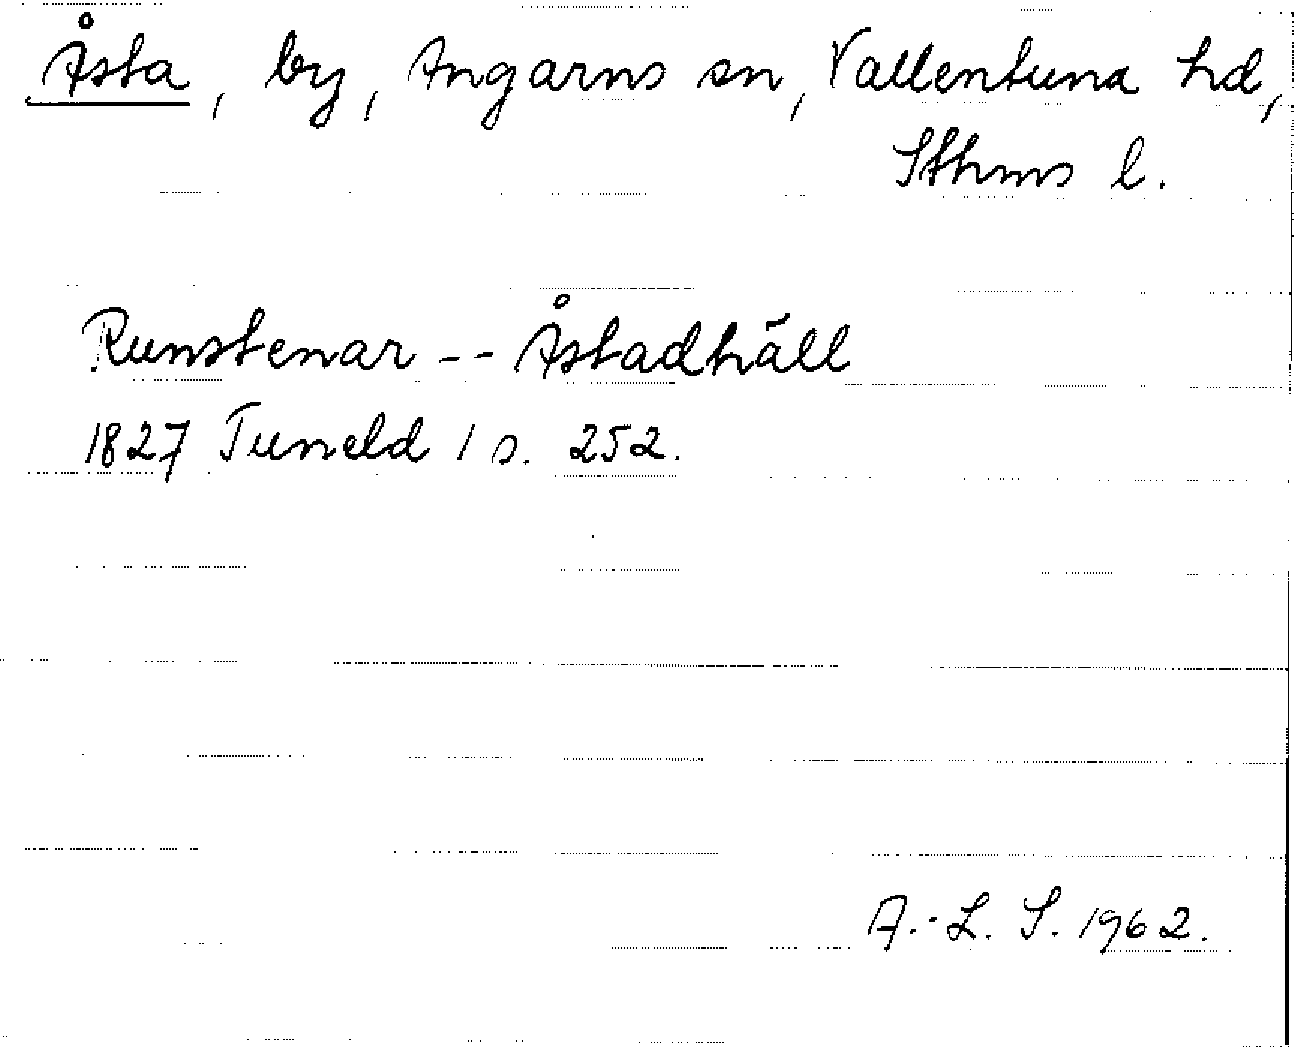 Åsta, by, Angarns sn, Vallentuna hd,
Sthms l.
Runstenar -- Åstadhäll
1827 Tuneld 1 s. 252.
A.-L. S. 1962.